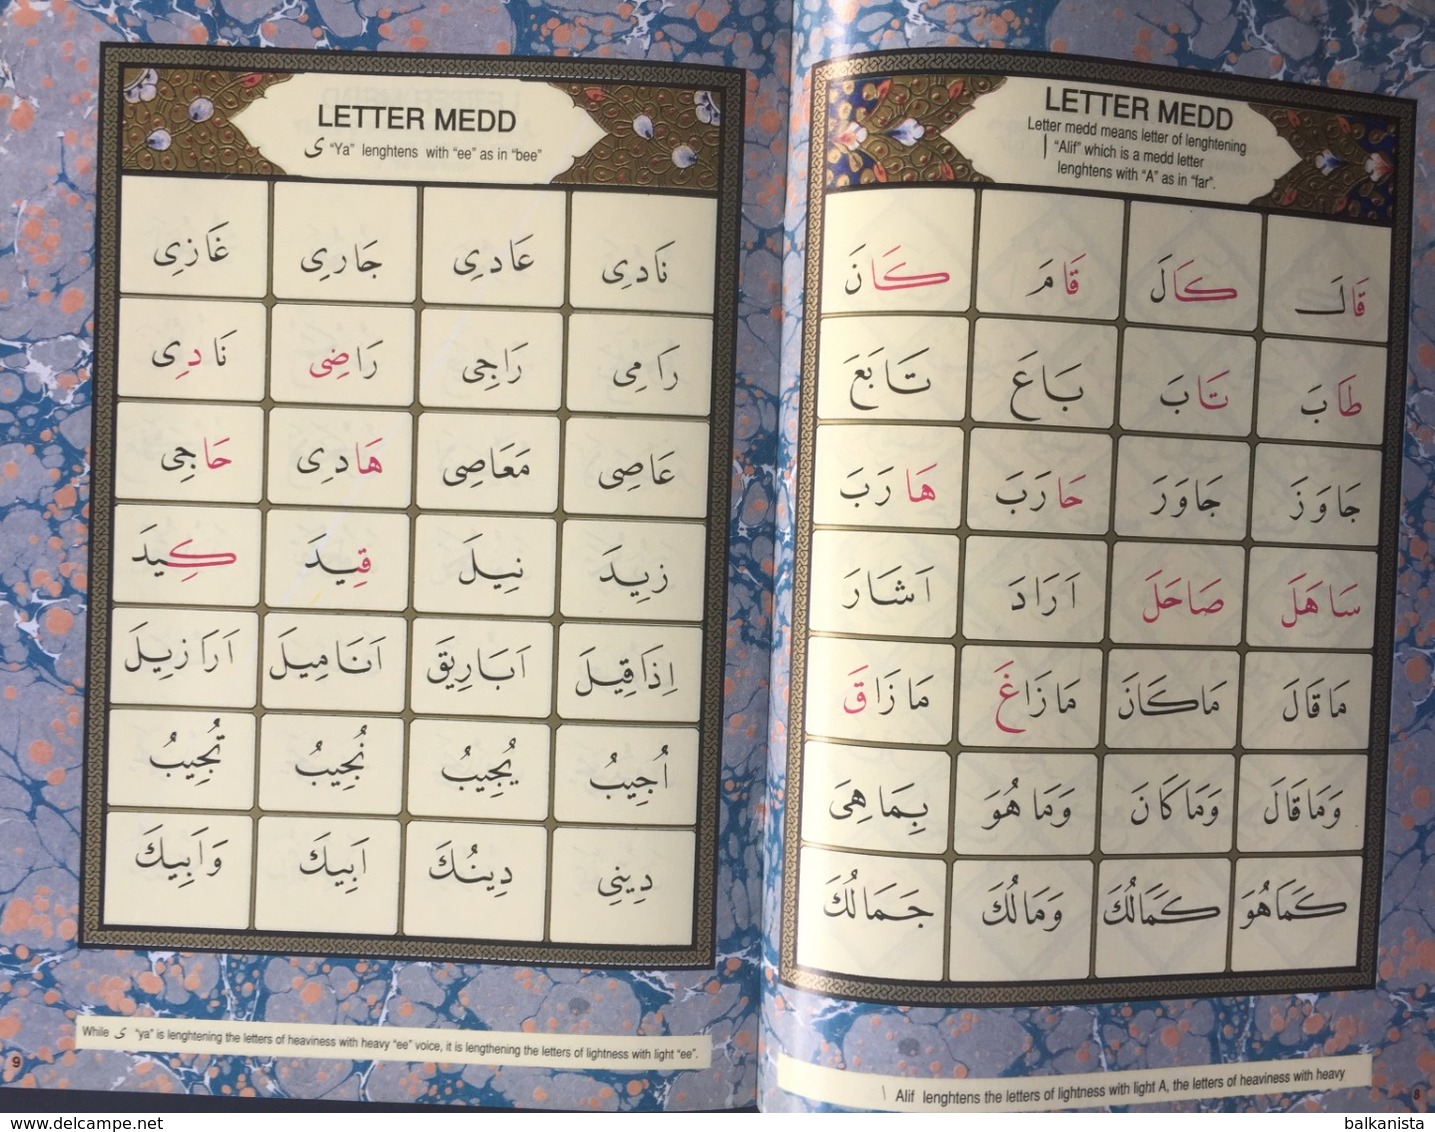 LETTER MEDD
Letter medd means letter of lenghtening
ا “Alif” which is a medd letter
lenghtens with “A” as in “far”.
قَالَ كَالَ قَامَ كَانَ
طَابَ تَابَ بَاعَ تَابَعَ
جَاوَزَ جَاوَرَ حَارَبَ هَارَبَ
سَاهَلَ صَاحَلَ اَرَادَ اَشَارَ
مَاقَالَ مَاكَانَ مَازَاغَ مَازَاقَ
وَمَاقَالَ وَمَاكَانَ وَمَاهُوَ بِمَاهِىَ
كَمَاهُوَ كَمَالُكَ وَمَالُكَ جَمَالُكَ
ا Alif lenghtens the letters of lightness with light A, the letters of heaviness with heavy
8
LETTER MEDD
ى “Ya” lenghtens with “ee” as in “bee”
نَادِى عَادِى جَارِى غَازِى
رَامِى رَاجِى رَاضِى نَادِى
عَاصِى مَعَاصِى هَادِى حَاجِى
زِيدَ نِيلَ قِيدَ كِيدَ
اِذَاقِيلَ اَبَارِيقَ اَنَامِيلَ اَرَازِيلَ
اُجِيبُ يُجِيبُ نُجِيبُ تُجِيبُ
دِينِى دِينُكَ اَبِيكَ وَاَبِيكَ
While ى “ya” is lenghtening the letters of heaviness with heavy “ee” voice, it is lengthening the letters of lightness with light “ee”.
9
www.delcampe.net
balkanista